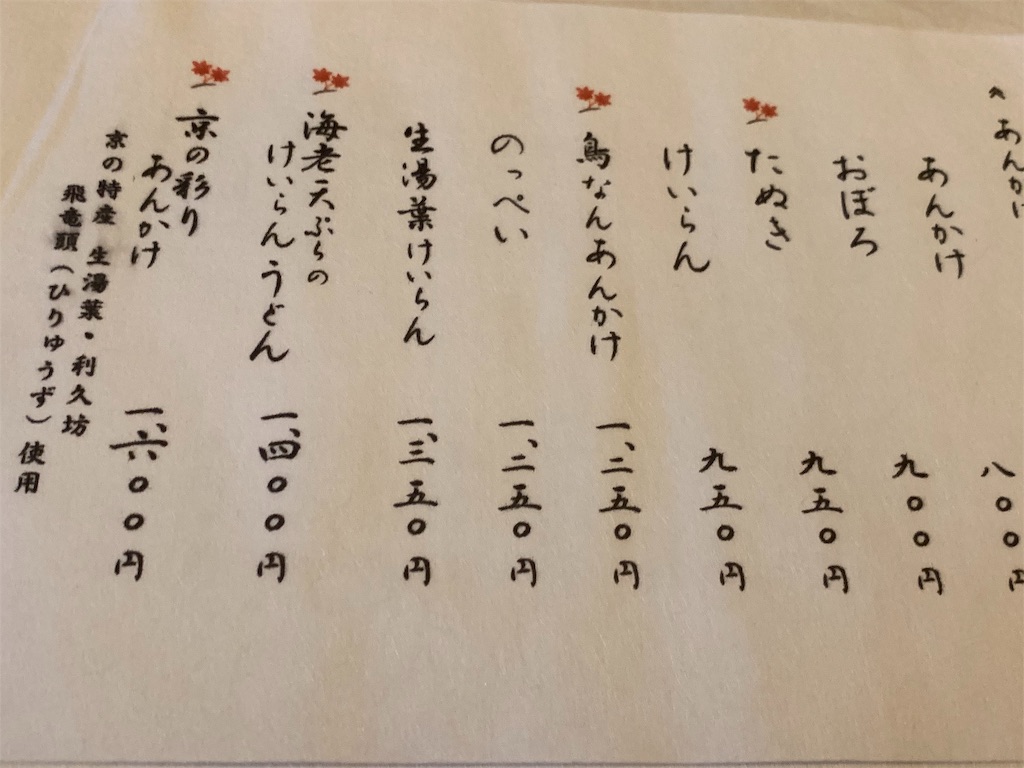 〈あんか
あんかけ 八〇〇円
おぼろ 九〇〇円
たぬき 九五〇円
けいらん 九五〇円
鳥なんあんかけ 一、二五〇円
のっぺい 一、二五〇円
生湯葉けいらん 一、三五〇円
海老天ぷらの
けいらんうどん 一、四〇〇円
京の彩り
あんかけ 一、六〇〇円
京の特産 生湯葉・利久坊
飛竜頭(ひりゆうず)使用